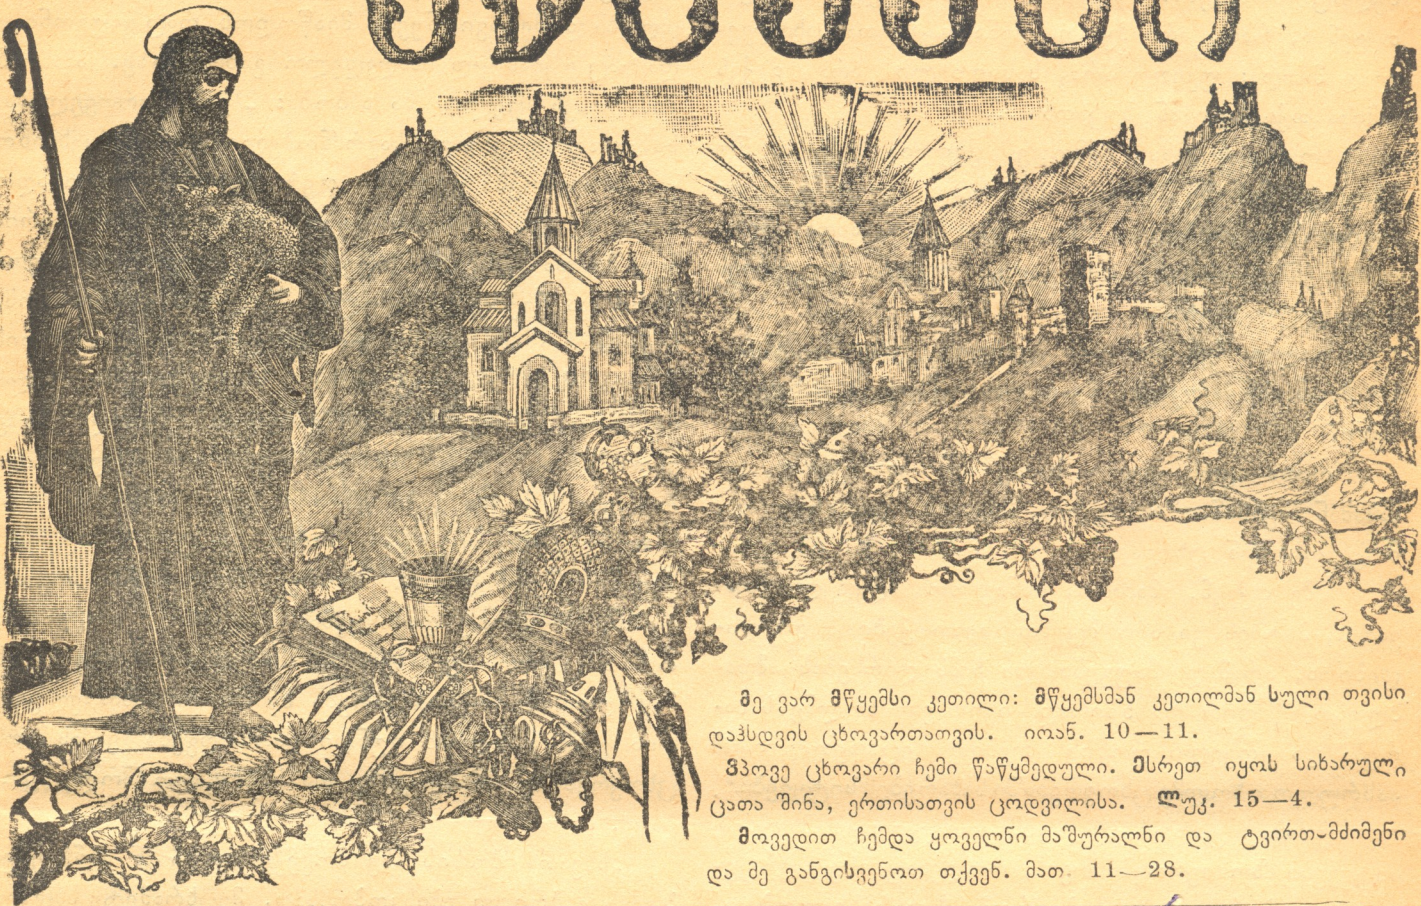 მე ვარ მწყემსი კეთილი: მწყემსმან კეთილმან სული თვისი
დაჰსდვის ცხოვართათვის. იოან. 10—11.
ვპოვე ცხოვარი ჩემი წაწყმედული. ესრეთ იყოს სიხარული
ცათა შინა, ერთისათვის ცოდვილისა. ლუკ. 15—4.
მოვედით ჩემდა ყოველნი მაშურალნი და ტვირთ-მძიმენი
და მე განგისვენოთ თქვენ. მათ. 11—28.